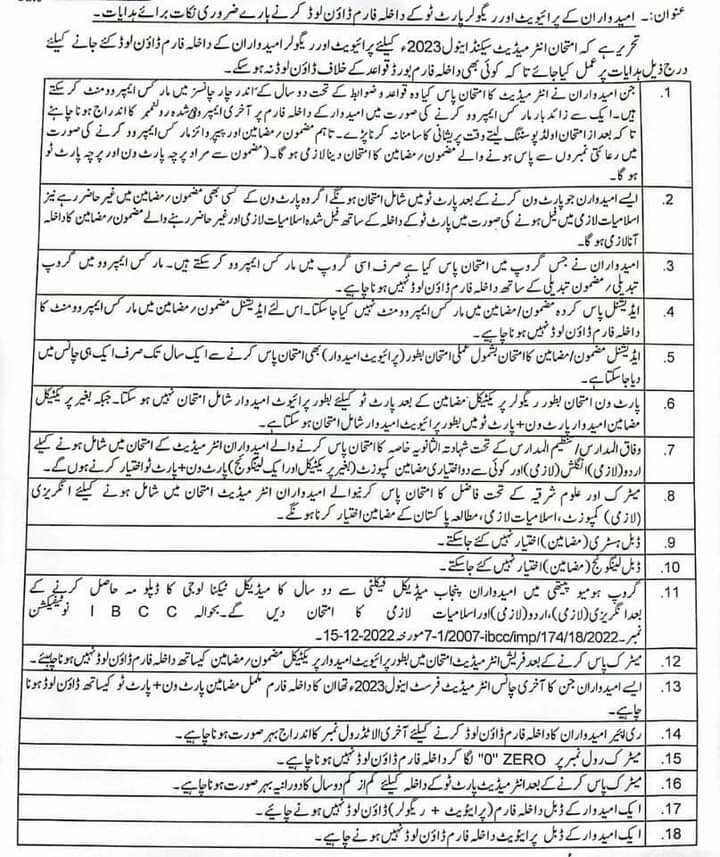 عنوان:۔ امیدواران کے پرائیویٹ اور ریگولر پارٹ ٹو کے داخلہ فارم ڈاؤن لوڈ کرنے بارے ضروری نکات برائے ہدایات۔
تحریر ہے کہ امتحان انٹرمیڈیٹ سیکنڈ اینول 2023ء کیلئے پرائیویٹ اور ریگولر امیدواران کے داخلہ فارم ڈاؤن لوڈ کئے جانے کیلئے
درج ذیل ہدایات پر عمل کیا جائے تاکہ کوئی بھی داخلہ فارم بورڈ قواعد کے خلاف ڈاؤن لوڈ نہ ہو سکے۔
1. جن امیدواران نے انٹرمیڈیٹ کا امتحان پاس کیا وہ قواعد و ضوابط کے تحت دو سال کے اندر چار چانسز میں مارکس ایمپروومنٹ کر سکتے
ہیں۔ ایک سے زائد بار مارکس ایمپروو کرنے کی صورت میں امیدوار کے داخلہ فارم پر آخری ایمپرووشدہ رولنمبر کا اندراج ہونا چاہئے
تاکہ بعد از امتحان اولڈ پوسٹنگ لیتے وقت پریشانی کا سامنا نہ کرنا پڑے۔ تاہم مضمون/مضامین اور پیپروائز مارکس ایمپروو کرنے کی صورت
میں رعائتی نمبروں سے پاس ہونے والے مضمون/مضامین کا امتحان دینا لازمی ہو گا۔ (مضمون سے مراد پرچہ پارٹ ون اور پرچہ پارٹ ٹو
ہو گا۔
2. ایسے امیدواران جو پارٹ ون کرنے کے بعد پارٹ ٹو میں شامل امتحان ہونگے اگر وہ پارٹ ون کے کسی بھی مضمون/مضامین میں غیر حاضر رہے نیز
اسلامیات لازمی میں فیل ہونے کی صورت میں پارٹ ٹو کے داخلہ کے ساتھ فیل شدہ اسلامیات لازمی اور غیر حاضر رہنے والے مضمون/مضامین کا داخلہ
آنا لازمی ہو گا۔
3. امیدواران نے جس گروپ میں امتحان پاس کیا ہے صرف اسی گروپ میں مارکس ایمپروو کر سکتے ہیں۔ مارکس ایمپروو میں گروپ
تبدیلی/مضمون تبدیلی کے ساتھ داخلہ فارم ڈاؤن لوڈ نہیں ہونا چاہیے۔
4. ایڈیشنل پاس کردہ مضمون/مضامین میں مارکس ایمپروومنٹ نہیں کیا جا سکتا۔ اس لئے ایڈیشنل مضمون/مضامین میں مارکس ایمپروومنٹ کا
داخلہ فارم ڈاؤن لوڈ نہیں ہونا چاہیے۔
5. ایڈیشنل مضمون/مضامین کا امتحان بشمول عملی امتحان بطور (پرائیویٹ امیدوار) بھی امتحان پاس کرنے سے ایک سال تک صرف ایک ہی چانس میں
دیا جا سکتا ہے۔
6. پارٹ ون امتحان بطور ریگولر پریکٹیکل مضامین کے بعد پارٹ ٹو کیلئے بطور پرائیوٹ امیدوار شامل امتحان نہیں ہو سکتا۔ جبکہ بغیر پریکٹیکل
مضامین امیدوار پارٹ ون+پارٹ ٹو میں بطور پرائیویٹ امیدوار شامل امتحان ہو سکتا ہے۔
7. وفاق المدارس/تنظیم المدارس کے تحت شہادتہ الثانویہ خاصہ کا امتحان پاس کرنے والے امیدواران انٹرمیڈیٹ کے امتحان میں شامل ہونے کیلئے
اردو (لازمی) انگلش (لازمی) اور کوئی سے دو اختیاری مضامین کمپوزٹ (بغیر پریکٹیکل اور ایک لینگوئج) پارٹ ون+پارٹ ٹو اختیار کرنے ہوں گے۔
8. میٹرک اور علوم شرقیہ کے تحت فاضل کا امتحان پاس کرنیوالے امیدواران انٹرمیڈیٹ امتحان میں شامل ہونے کیلئے انگریزی
(لازمی) کمپوزٹ، اسلامیات لازمی، مطالعہ پاکستان کے مضامین اختیار کرنا ہونگے۔
9. ڈبل ہسٹری (مضامین) اختیار نہیں کئے جا سکتے۔
10. ڈبل لینگوئج (مضامین) اختیار نہیں کئے جا سکتے۔
11. گروپ ہومیوپیتھی میں امیدواران پنجاب میڈیکل فیکلٹی سے دو سال کا میڈیکل ٹیکنالوجی کا ڈپلومہ حاصل کرنے کے
بعد انگریزی (لازمی)، اردو (لازمی) اور اسلامیات لازمی کا امتحان دیں گے۔ بحوالہ I B C C نوٹیفکیشن
نمبر۔7-1/2007-ibcc/imp/174/18/2022 مورخہ 15-12-2022۔
12. میٹرک پاس کرنے کے بعد فریش انٹرمیڈیٹ امتحان میں بطور پرائیویٹ امیدوار پریکٹیکل مضمون/مضامین کیساتھ داخلہ فارم ڈاؤن لوڈ نہیں ہونا چاہیئے۔
13. ایسے امیدواران جن کا آخری چانس انٹرمیڈیٹ فرسٹ اینول 2023ء تھا ان کا داخلہ فارم مکمل مضامین پارٹ ون+پارٹ ٹو کیساتھ ڈاؤن لوڈ ہونا
چاہیے۔
14. ری اپیئر امیدواران کا داخلہ فارم ڈاؤن لوڈ کرنے کیلئے آخری الانڈ رول نمبر کا اندراج بہر صورت ہونا چاہیے۔
15. میٹرک رول نمبر پر ZERO "0" لگا کر داخلہ فارم ڈاؤن لوڈ نہیں ہونا چاہیے۔
16. میٹرک پاس کرنے کے بعد انٹرمیڈیٹ پارٹ ٹو کے داخلہ کیلئے کم از کم دو سال کا دورانیہ بہر صورت ہونا چاہیے۔
17. ایک امیدوار کے ڈبل داخلہ فارم (پرایؤیٹ + ریگولر) ڈاؤن لوڈ نہیں ہونے چاہیئے۔
18. ایک امیدوار کے ڈبل پرایؤیٹ داخلہ فارم ڈاؤن لوڈ نہیں ہونے چاہیے۔